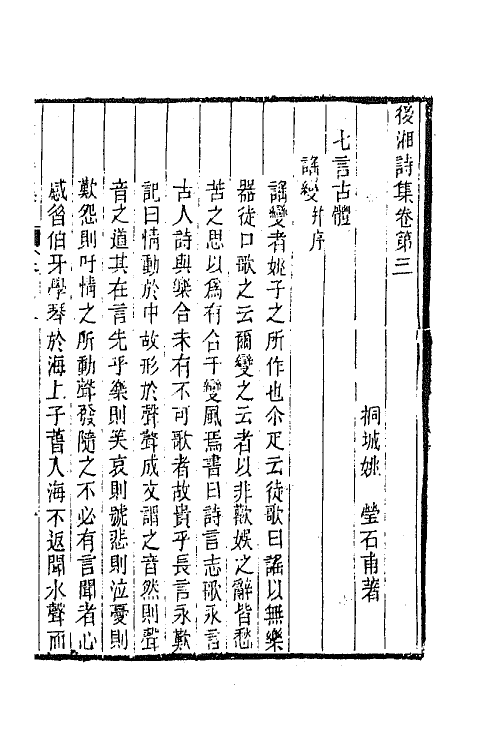 後湘詩集卷第三
桐城姚　瑩石甫著
七言古體
謠變并序
謠變者姚子之所作也尒疋云徒歌曰謠以無樂
器徒口歌之云爾變之云者以非歡娛之辭皆愁
苦之思以爲有合于變風焉書曰詩言志歌永言
古人詩與樂合未有不可歌者故貴乎長言永歎
記曰情動於中故形於聲聲成文謂之音然則聲
音之道其在言先乎樂則笑哀則號悲則泣憂則
歎怨則吁情之所動聲發隨之不必有言聞者心
感昝伯牙學琴於海上子舊入海不返聞水聲而